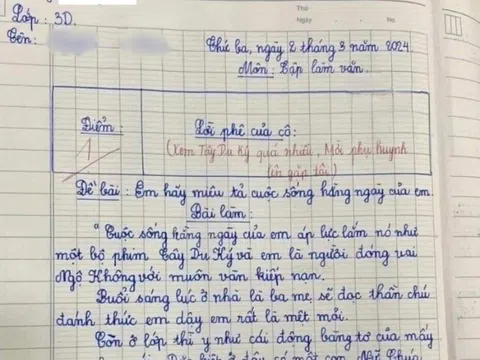 Thứ
Ngày No.
Lớp: 3D.
Tên:
Thứ ba, ngày 2 tháng 3 năm 2024.
Môn: Tập làm văn.
Điểm:
1
Lời phê của cô:
(Xem Tây Du Ký quá nhiều. Mời phụ huynh
lên gặp tôi)
Đề bài: Em hãy miêu tả cuộc sống hằng ngày của em.
Bài làm:
"Cuộc sống hằng ngày của em áp lực lắm nó như
một bộ phim Tây Du Ký và em là người đóng vai
Ngộ Không với muôn vàn kiếp nạn.
Buổi sáng lúc ở nhà là ba mẹ sẽ đọc thần chú
đánh thức em dậy em rất là mệt mỏi.
Còn ở lớp thì y như cái động bàng tơ của mấy